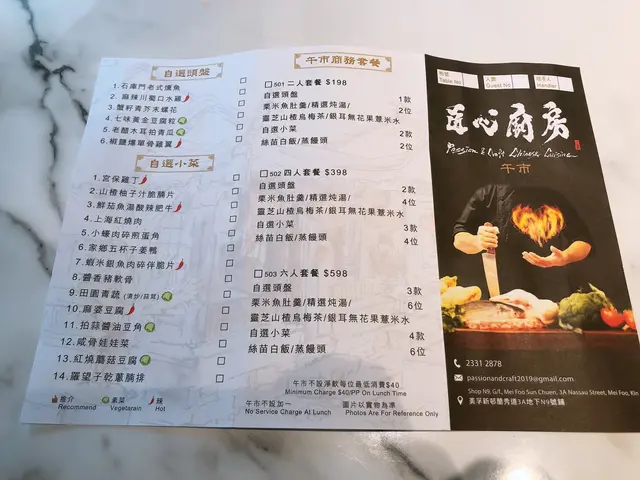 自選頭盤
1.石庫門老式燻魚
2.麻辣川蜀口水雞
3.蟹籽青芥末螺花
4.七味黃金豆腐粒
5.老醋木耳拍青瓜
6.椒鹽爆單骨雞翼
自選小菜
1.宮保雞丁
2.山楂柚子汁脆腩片
3.鮮茄魚湯酸辣肥牛
4.上海紅燒肉
5.小蠔肉碎煎蛋角
6.家鄉五杯子姜鴨
7.蝦米銀魚肉碎伴脆片
8.醬香豬軟骨
9.田園青蔬(清炒/蒜茸)
10.麻婆豆腐
11.拍蒜醬油豆角
12.咸骨娃娃菜
13.紅燒蘑菇豆腐
14.羅望子乾蔥腩排
推介 素菜 辣
Recommend Vegetarain Hot
午市商務套餐
501 二人套餐 $198
自選頭盤 1款
栗米魚肚羹/精選炖湯/ 2位
靈芝山楂烏梅茶/銀耳無花果薏米水
自選小菜 2款
絲苗白飯/蒸饅頭 2位
502 四人套餐 $398
自選頭盤 2款
栗米魚肚羹/精選炖湯/ 4位
靈芝山楂烏梅茶/銀耳無花果薏米水
自選小菜 3款
絲苗白飯/蒸饅頭 4位
503 六人套餐 $598
自選頭盤 3款
栗米魚肚羹/精選炖湯/ 6位
靈芝山楂烏梅茶/銀耳無花果薏米水
自選小菜 4款
絲苗白飯/蒸饅頭 6位
午市不設淨飲每位最低消費$40
Minimum Charge $40/PP On Lunch Time
午市不設加一 圖片以實物為準
No Service Charge At Lunch Photos Are For Reference Only
Table No Guest No Handler
匠心廚房
Passion & Craft Chinese Cuisine
午市
2331 2878
passionandcraft2019@gmail.com
Shop N9, G/f, Mei Foo Sun Chuen, 3A Nassau Street, Mei Foo, Kln
美孚新邨蘭秀道3A地下N9號舖